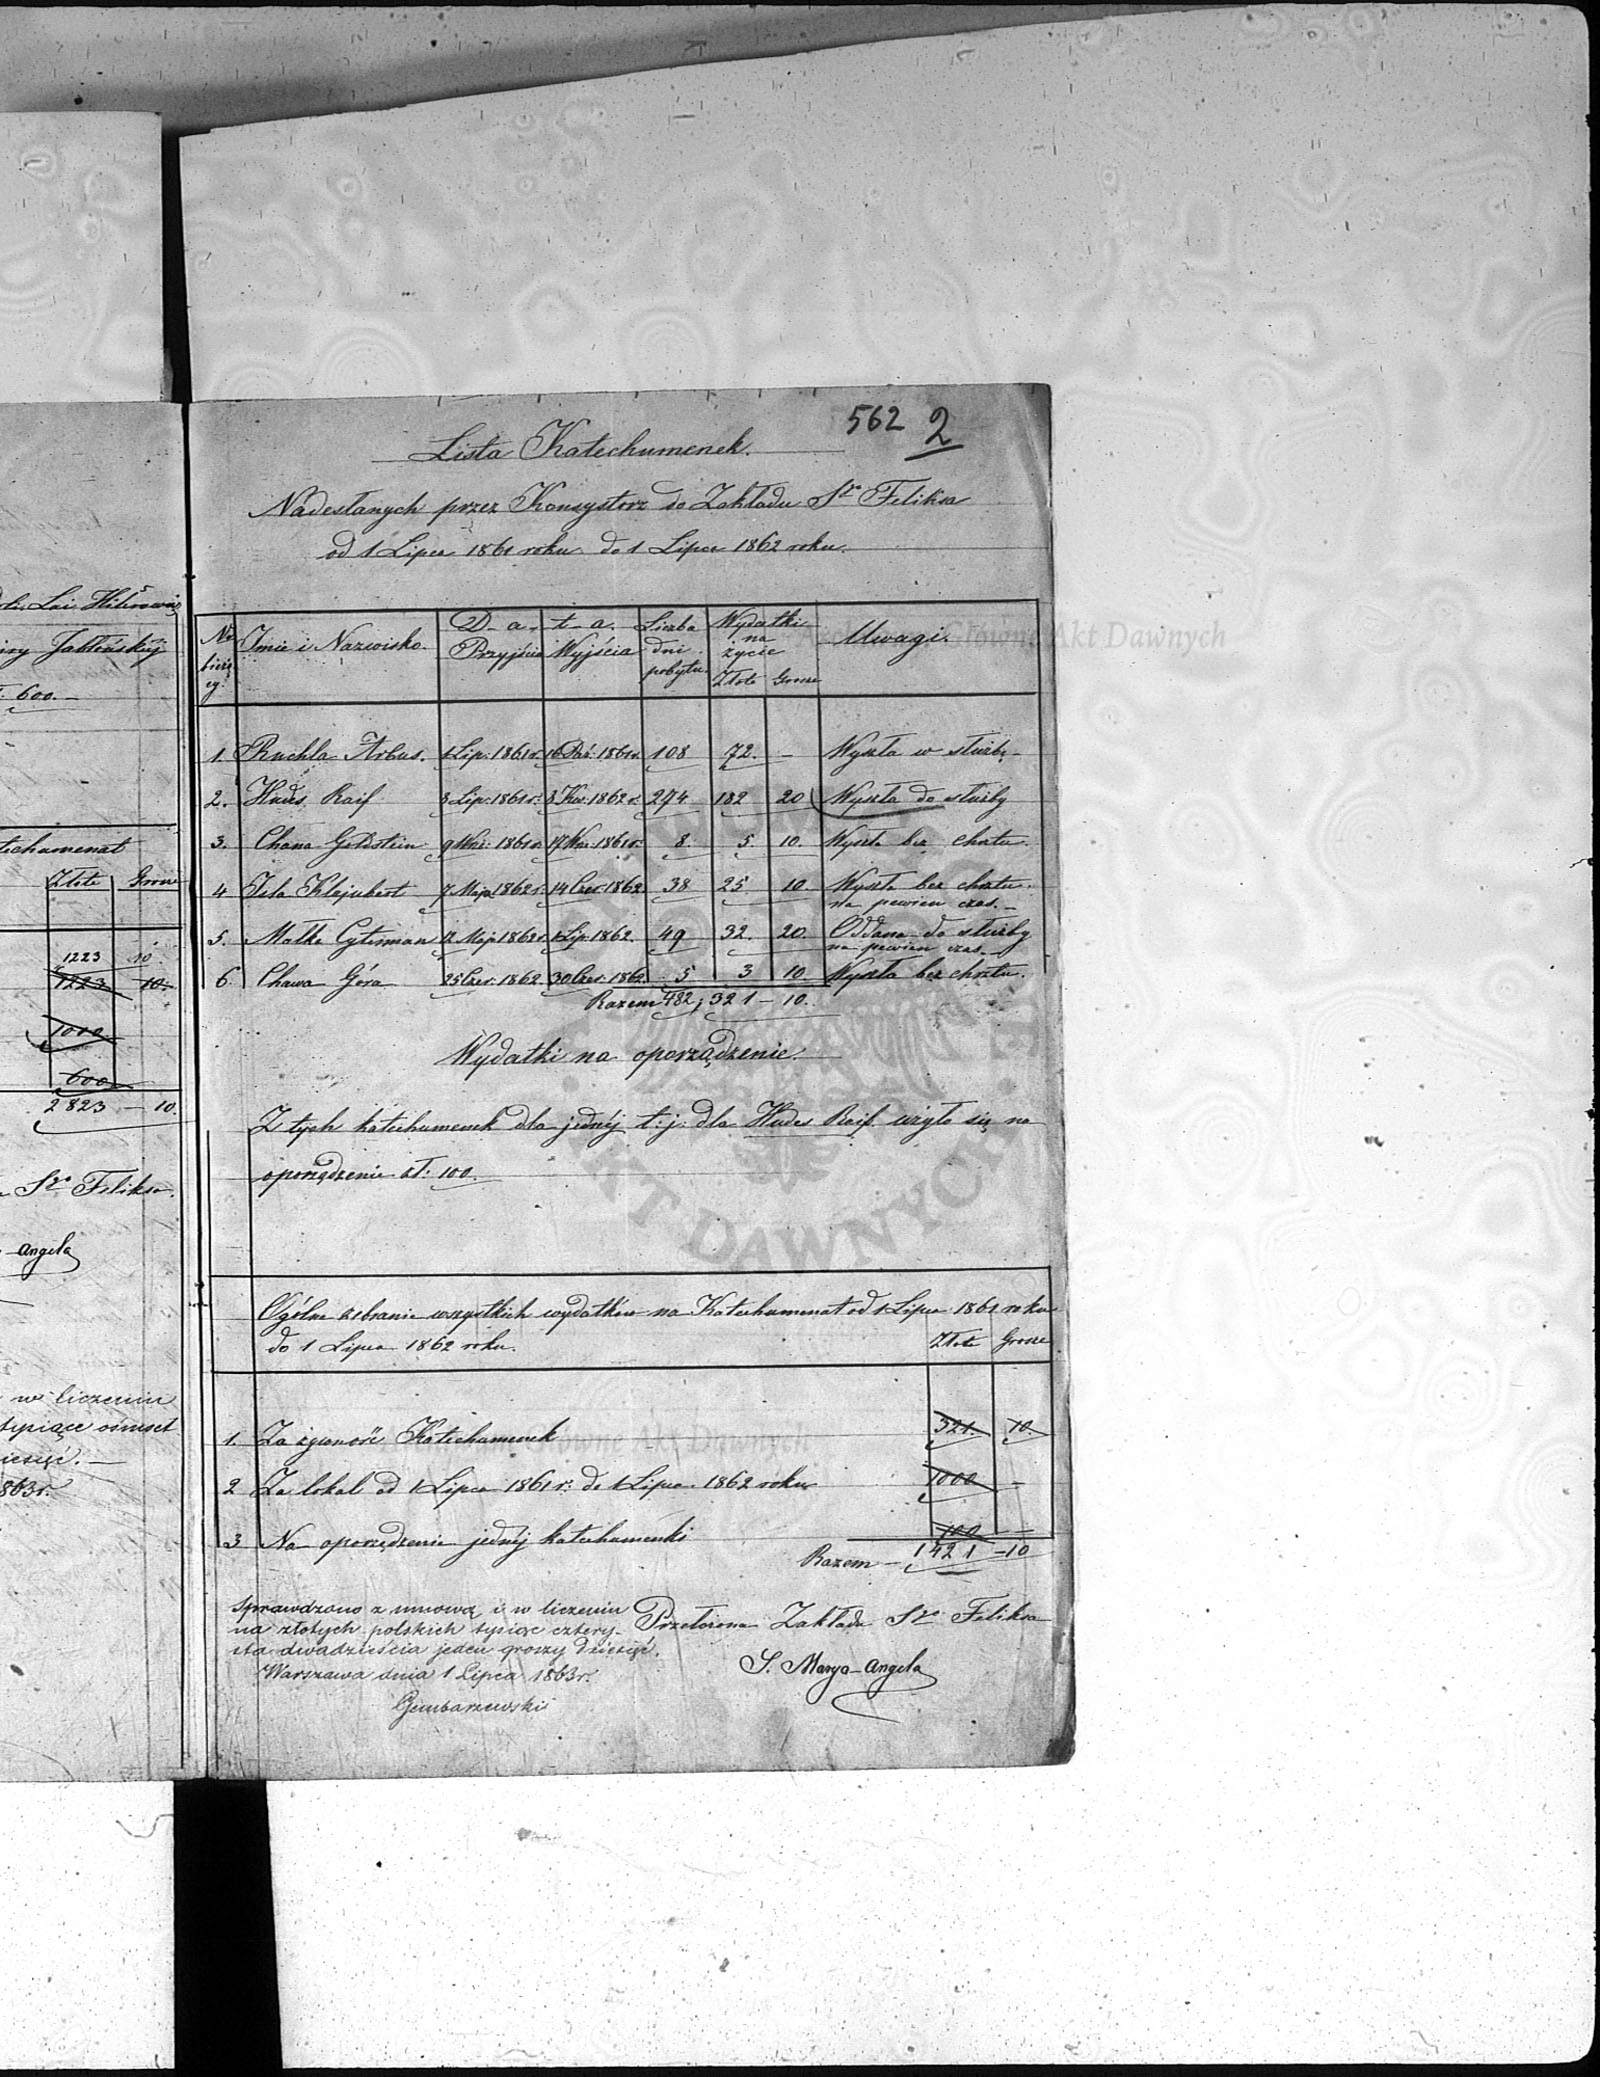 562 2
Lista Katechumenek.
Nadesłanych przez Konsystorz do Zakładu Sgo Feliksa
od 1 Lipca 1861 roku do 1 Lipca 1862 roku.
No bieżący. Imie i Nazwisko. Data Przyjścia Wyjścia Liczba dni pobytu. Wydatki na życie Złote Grosze Uwagi.
1. Ruchla Arbus. 1 Lip: 1861 r. 16 Paź: 1861 r. 108 72. — Wyszła w służbę
2. Hudes Raif 8 Lip: 1861 r. 8 Kw: 1862 r. 274 182 20 Wyszła do służby
3. Chana Goldstein 9 Wrz: 1861 r. 17 Wrz: 1861 r. 8. 5 10. Wyszła bez chrztu.
4 Tela Klajnbort 7 Maja 1862 r. 14 Czer: 1862 38 25 10. Wyszła bez chrztu.
na pewien czas.
5. Malka Cytrinman 12 Maj: 1862 r. 1 Lip. 1862. 49 32. 20. Oddana do służby
na pewien czas
6 Chawa Góra 25 Czer: 1862 30 Czer: 1862 5 3 10 Wyszła bez chrztu.
Razem 482; 321 — 10.
Wydatki na oporządzenie.
Z tych katechumenek dla jednéj t: j: dla Hudes Raif użyto się na
oporządzenie zł: 100.
Ogólne zebranie wszystkich wydatków na Katechumenat od 1 Lipca 1861 roku
do 1 Lipca 1862 roku. Złote Grosze
1. Za żywność Katechumenek 321. 10.
2 Za lokal od 1 Lipca 1861 r: do 1 Lipca 1862 roku 1000 —
3 Na oporządzenie jednéj katechumenki 100 —
Razem — 1421 — 10
Sprawdzono z umową i w liczeniu
na złotych polskich tysiąc cztery-
sta dwadzieścia jeden groszy dziesięć.
Warszawa dnia 1 Lipca 1863 r.
Gembarzewski
Przełożona Zakładu Sgo Feliksa
S. Marya-Angela
Jabłońskiéj
600. —
Złote Grosze
1223 10.
1223 10.
1000
600
2823 — 10.
Sgo Feliksa.
Angela
w liczeniu
tysiące ośmset
Archiwum Główne Akt Dawnych
Główne Akt Dawnych
AKT DAWNYCH